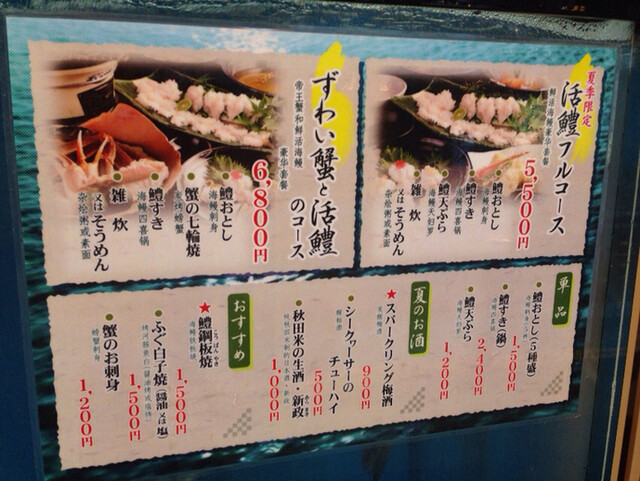 夏季限定
活鱧フルコース
鮮活海鳗豪华套餐
5,500円
鱧おとし
海鳗刺身
鱧すき
海鳗四喜锅
鱧天ぷら
海鳗天妇罗
雑炊
又はそうめん
杂烩粥或素面
ずわい蟹と活鱧
のコース
帝王蟹和鲜活海鳗
豪华套餐
6,800円
鱧おとし
海鳗刺身
蟹の七輪焼
炭烤螃蟹
鱧すき
海鳗四喜锅
雑炊
又はそうめん
杂烩粥或素面
単品
鱧おとし(5種盛)
1,500円
鱧すき(鍋)
海鳗四喜锅
2,400円
鱧天ぷら
海鳗天妇罗
1,200円
夏のお酒
★スパークリング梅酒
900円
シークヮーサーの
チューハイ
500円
秋田米の生酒・新政
1,000円
おすすめ
★鱧鋼板焼
こうばんやき
1,500円
ふぐ白子焼(醤油又は塩)
1,500円
蟹のお刺身
螃蟹刺身
1,200円